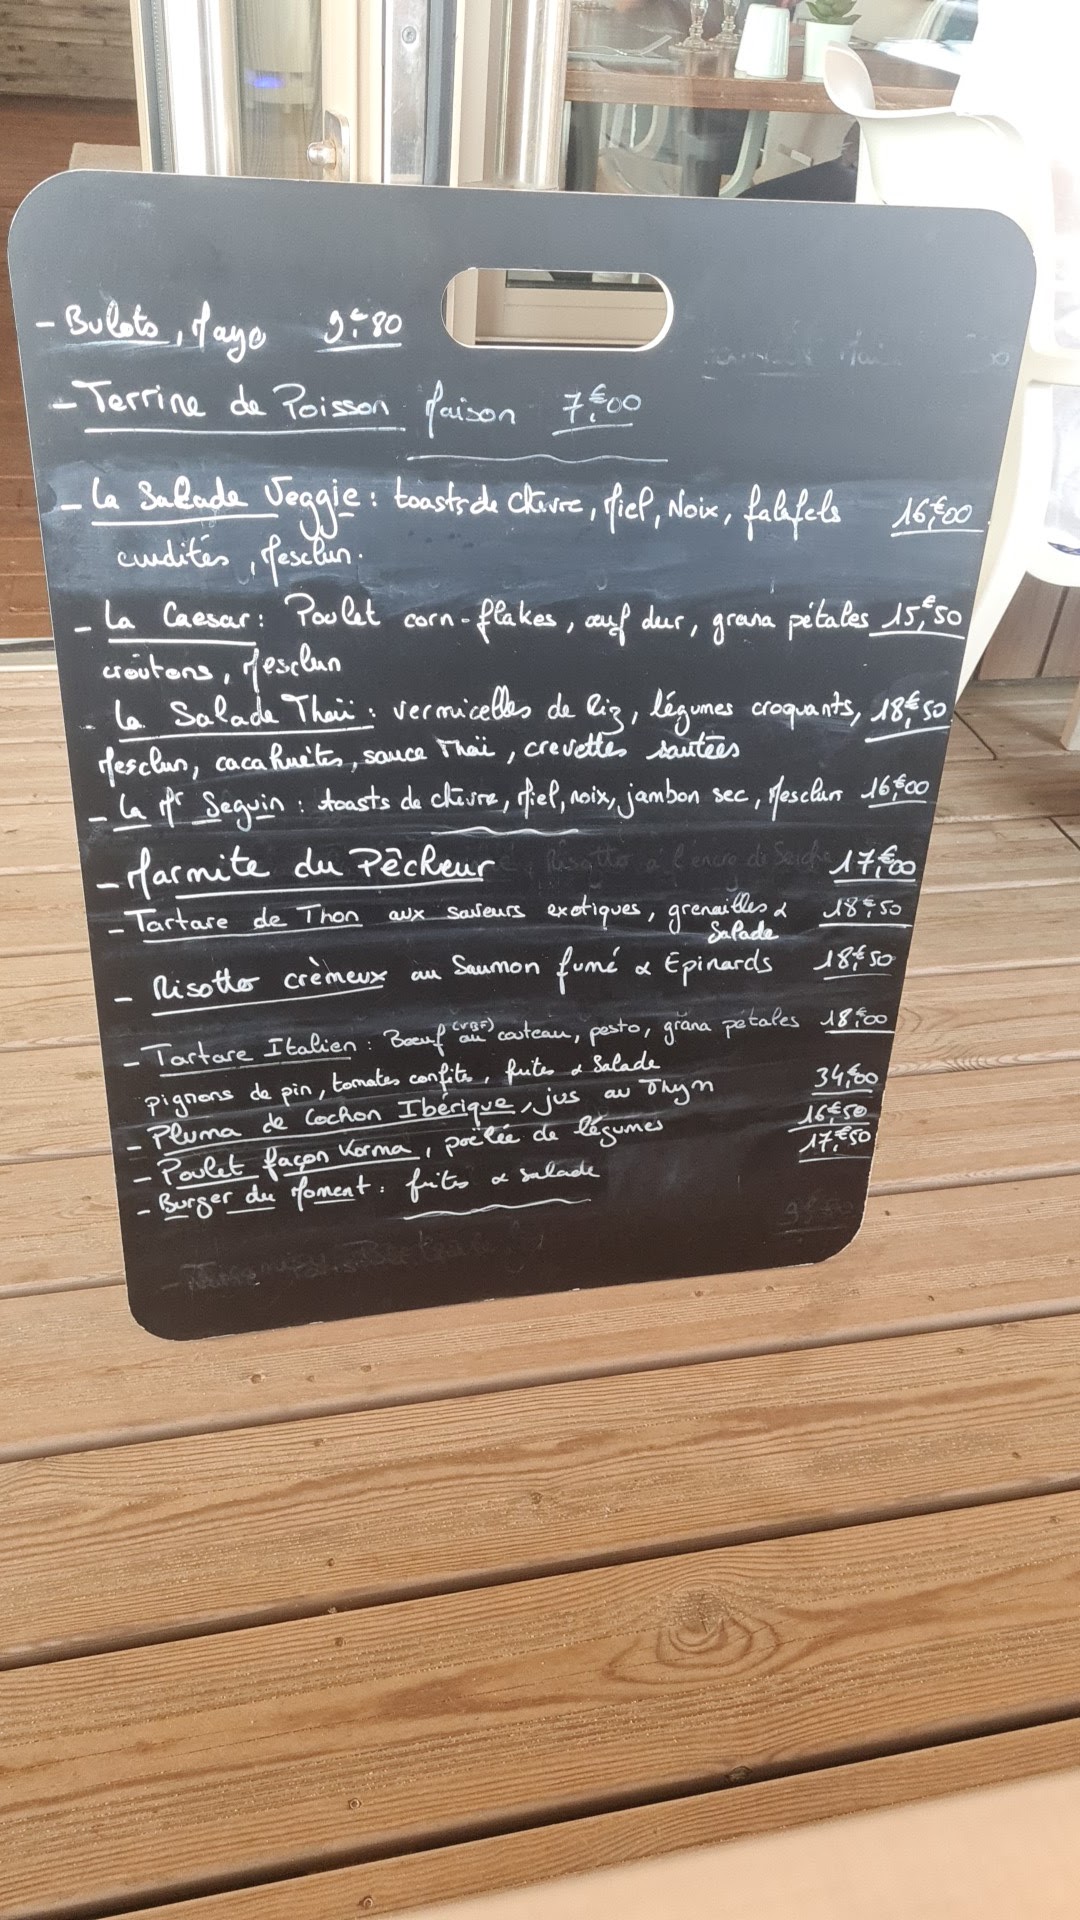 - Bulots, Mayo 9,€80
- Terrine de Poisson Maison 7,€00
- La Salade Veggie : toasts de Chèvre, Miel, Noix, falafels 16,€00
crudités, Mesclun.
- La Caesar : Poulet corn-flakes, œuf dur, grana pétales 15,€50
croûtons, Mesclun
- La Salade Thaï : vermicelles de Riz, légumes croquants, 18,€50
Mesclun, cacahuètes, sauce Thaï, crevettes sautées
- La Mr Seguin : toasts de chèvre, Miel, noix, jambon sec, Mesclun 16,€00
- Marmite du Pêcheur 17,€00
- Tartare de Thon aux saveurs exotiques, grenailles & 18,€50
Salade
- Risotto crèmeux au Saumon fumé & Epinards 18,€50
- Tartare Italien : Boeuf (VBF) au couteau, pesto, grana pétales 18,€00
pignons de pin, tomates confites, frites & Salade
- Pluma de Cochon Ibérique, jus au Thym 34,€00
- Poulet façon Korma, poëlée de légumes 16,€50
- Burger du Moment : frites & salade 17,€50